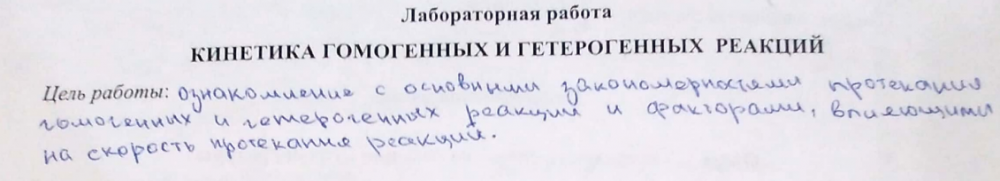 Лабораторная работа
КИНЕТИКА ГОМОГЕННЫХ И ГЕТЕРОГЕННЫХ РЕАКЦИЙ
Цель работы: ознакомление с основными закономерностями протекания
гомогенных и гетерогенных реакций и факторами, влияющими
на скорость протекания реакций.